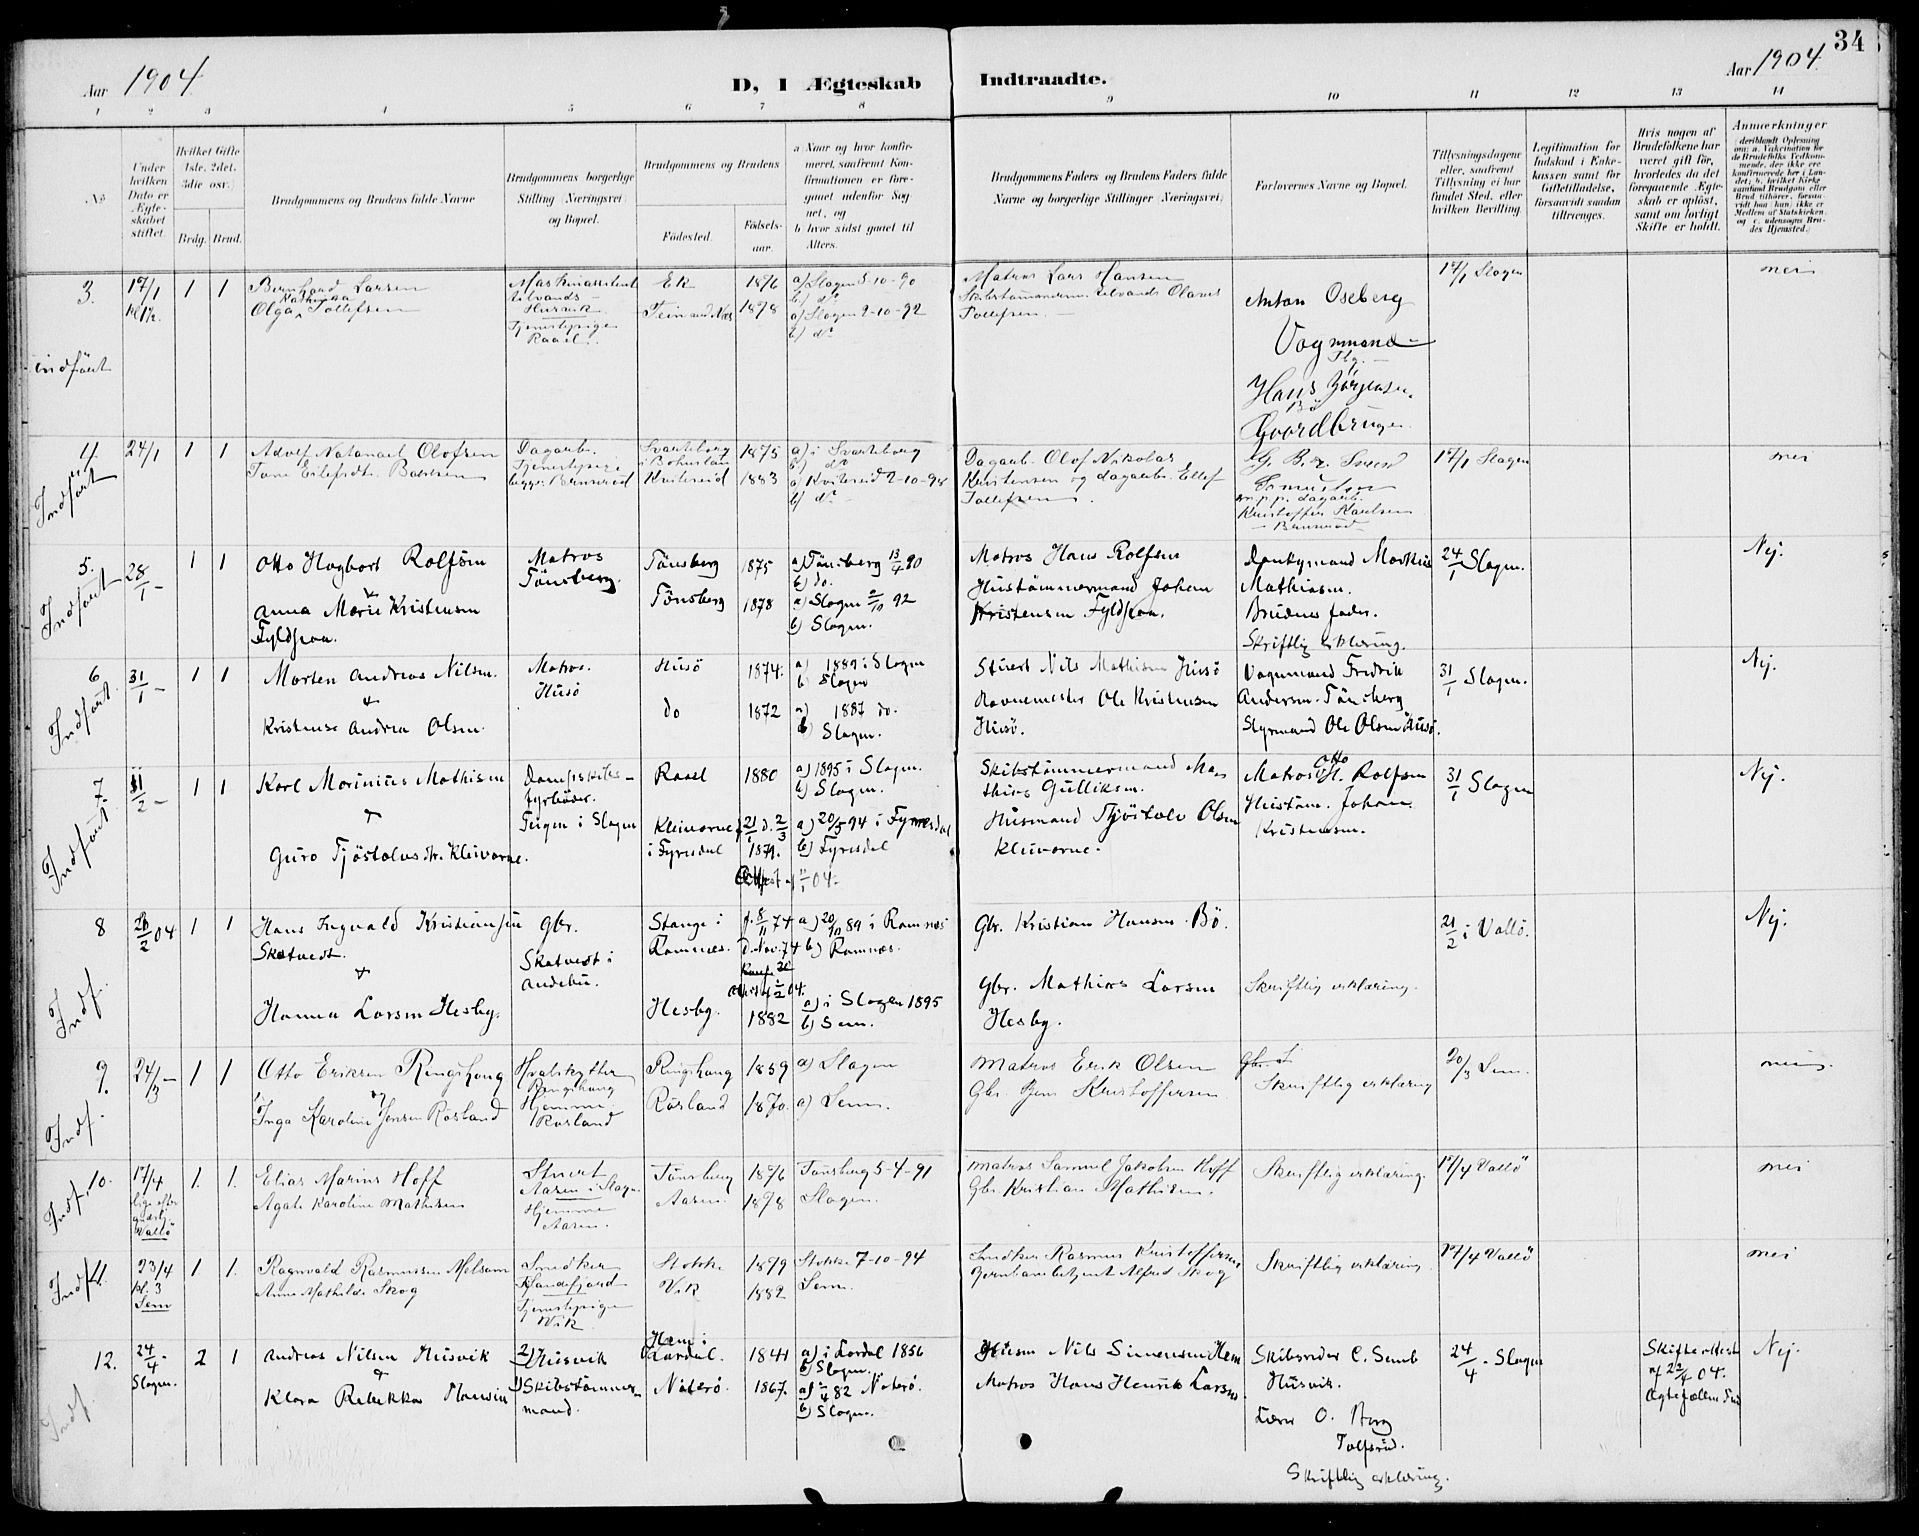 34
Aar 1904
D, I Ægteskab Indtraadte.
Aar 1904.
1 2 3 4 5 6 7 8 9 10 11 12 13 14
No
Under hvilken Dato er Ægteskabet stiftet.
Hvilket Gifte 1ste, 2det, 3die osv.)
Brdg. Brud.
Brudgommens og Brudens fulde Navne
Brudgommens borgerlige Stilling (Næringsvei) og Bopæl.
Brudgommens og Brudens
Fødested.
Fødselsaar.
a Naar og hvor konfirmeret, saafremt Konfirmationen er foregaaet udenfor Sognet, og
b hvor sidst gaaet til Alters.
Brudgommens Faders og Brudens Faders fulde Navne og borgerlige Stillinger (Næringsvei)
Forlovernes Navne og Bopæl.
Tillysningsdagene eller, saafremt Tillysning ei har fundet Sted, efter hvilken Bevilling.
Legitimation for Indskud i Enkekassen samt for Giftetilladelse, forsaavidt saadan tiltrænges.
Hvis nogen af Brudefolkene har været gift før, hvorledes da det foregaaende Ægteskab er opløst, samt om lovligt Skifte er holdt.
Anmærkninger
3. 17/1 Kl 1½. 1 1
Bernhard Larsen
Olga Kathinka Tollefsen
Maskinassistent
Husvik
Tjenestepige
Raael.
Ek 1876
1878
a) Slagen 5-10-90
b) do
a) Slagen 2-10-92
b) do
Matros Lars Hansen
Skibstømmermand Olaves
Tollefsen.
Anton Oseberg
Vognmand
Tbg.
Hans Jörgensen.
Bö
Gaardbruger
17/1 Slagen
nei
indført
4. 24/1 1 1
Adolf Natanael Olofsen
Dagarb.
Tjenestepige
Svarteborg
i Bohuslän
Kviteseid
1875
1883
a) i Svarteborg
b) do
a) Kviteseid 2-10-98
b) do
Dagarb. Olof Nikolas
Kristensen og dagarb. Ellef
Tollefsen.
m.p.p. dagarb.
Kristoffer Karlsen
17/1 Slagen
nei
Indført
5. 28/1 – 1 1
Otto Hagbart Rolfsen
&
Anna Marie Kristensen
Fyldpaa.
Matros
Tönsberg.
Tönsberg 1875
Tönsberg 1878
a) Tönsberg 13/4 90
b) do.
a) Slagen 2/10 92
b) Slagen.
Matros Hans Rolfsen
Hustømmermand Johan
Kristensen Fyldpaa.
Mathias
Mathiasen.
Brudens fader.
Skriftlig erklæring.
24/1 Slagen.
Nej.
Indført
6 31/1 – 1 1
Morten Andreas Nilsen.
&
Kristense Andrea Olsen.
Matros.
Husö
Husö 1874.
do 1872
a) 1889 i Slagen
b) Slagen
a) 1887 do.
b) Slagen.
Stuert Nils Mathisen Husö
Havnemester Ole Kristensen
Husö.
Vognmand Fredrik
Andersen. Tönsberg
Styrmand Ole Olsen Husö.
31/1 Slagen.
Nej.
Indført
7. 11/2 – 1 1
Karl Marinius Mathisen
&
Guro Tjöstolvsdtr. Kleivarne.
Dampskibs–
fyrböder.
Teigen i Slagen
Raael 1880
Kleivarne
i Fyresdal
f. 21/1 d. 2/3
1879.
Attest af 11/1 04.
a) 1895 i Slagen.
b) Slagen.
a) 20/5 94 i Fyresdal
b) Fyresdal
Skibstømmermand Mathias Gulliksen.
Husmand Tjöstolv Olsen
Kleivarne.
Matros Otto H. Rolfsen
Hustøm. Johan
Kristensen.
31/1 Slagen
Nej.
Indført
8 26/2 04 1 1
Hans Ingvald Kristiansen
Skatvedt.
&
Hanna Larsen Hesby.
Gbr.
Skatvedt i
Andebu.
Stange i
Ramnæs.
Hesby.
f. 8/11 74
D. Nov. 74
1882
a) 20/10 89 i Ramnæs
b) Ramnæs.
a) i Slagen 1895
b) Sem.
Gbr. Kristian Hansen Bö.
Gbr. Mathias Larsen
Hesby.
Skriftlig erklæring.
21/2 i Vallö.
Nej.
Indf.
9. 24/3 – 1 1
Otto Eriksen Ringshaug
og
Inga Karoline Jensen Rosland
Hvalskytter
Ringshaug
Hjemme
Rosland
Ringshaug 1859
Rosland 1870.
a) Slagen
a) Sem.
Matros Erik Olsen
Gbr. Jens Kristoffersen
Skriftlig erklæring
20/3 Sem.
nei.
Indf.
10. 17/4 Vallö 1. 1.
Elias Marius Hoff
Agate Karoline Mathisen
Stuert
Aasen i Slagn
Hjemme
Aasen.
Tönsberg 1876
Aasen. 1878
Tönsberg 5-4-91
Slagen.
Matros Samuel Jakobsen Hoff
Gbr Kristian Mathisen.
Skriftlig erklæring.
17/4 Vallö
nei
Indf.
11. 23/4 kl. 3 Sem 1 1.
Ragnvald Rasmussen Melsom
Anna Mathilde Skog
Snedker
Sandefjord
Tjenestepige
Vik
Stokke 1879
Vik 1882
Stokke 7-10-94
Sem.
Snedker Rasmus Kristoffersen
Jernbanebetjent Alfred Skog
Skriftlig erklæring.
17/4 Vallö
nei
Indf.
12. 24/4. Slagen. 2 1
Andreas Nilsen Husvik
&
Klara Rebekka Hansen
2) Husvik
1) Skibstömmermand.
Hem i
Lardal. 1841
Nöterö. 1867.
a) i Lardal 1856
b) Slagen.
a) 82 Nöterö.
b) Slagen.
Husm Nils Simensen Hem
Matros Hans Henrik Larsen
Skibsreder C. Semb
Husvik.
Lærer O. Berg
Tolfsrød.
Skriftlig erklæring.
24/4. Slagen
Skifteattest
af 22/4 04.
Nej.
Indf